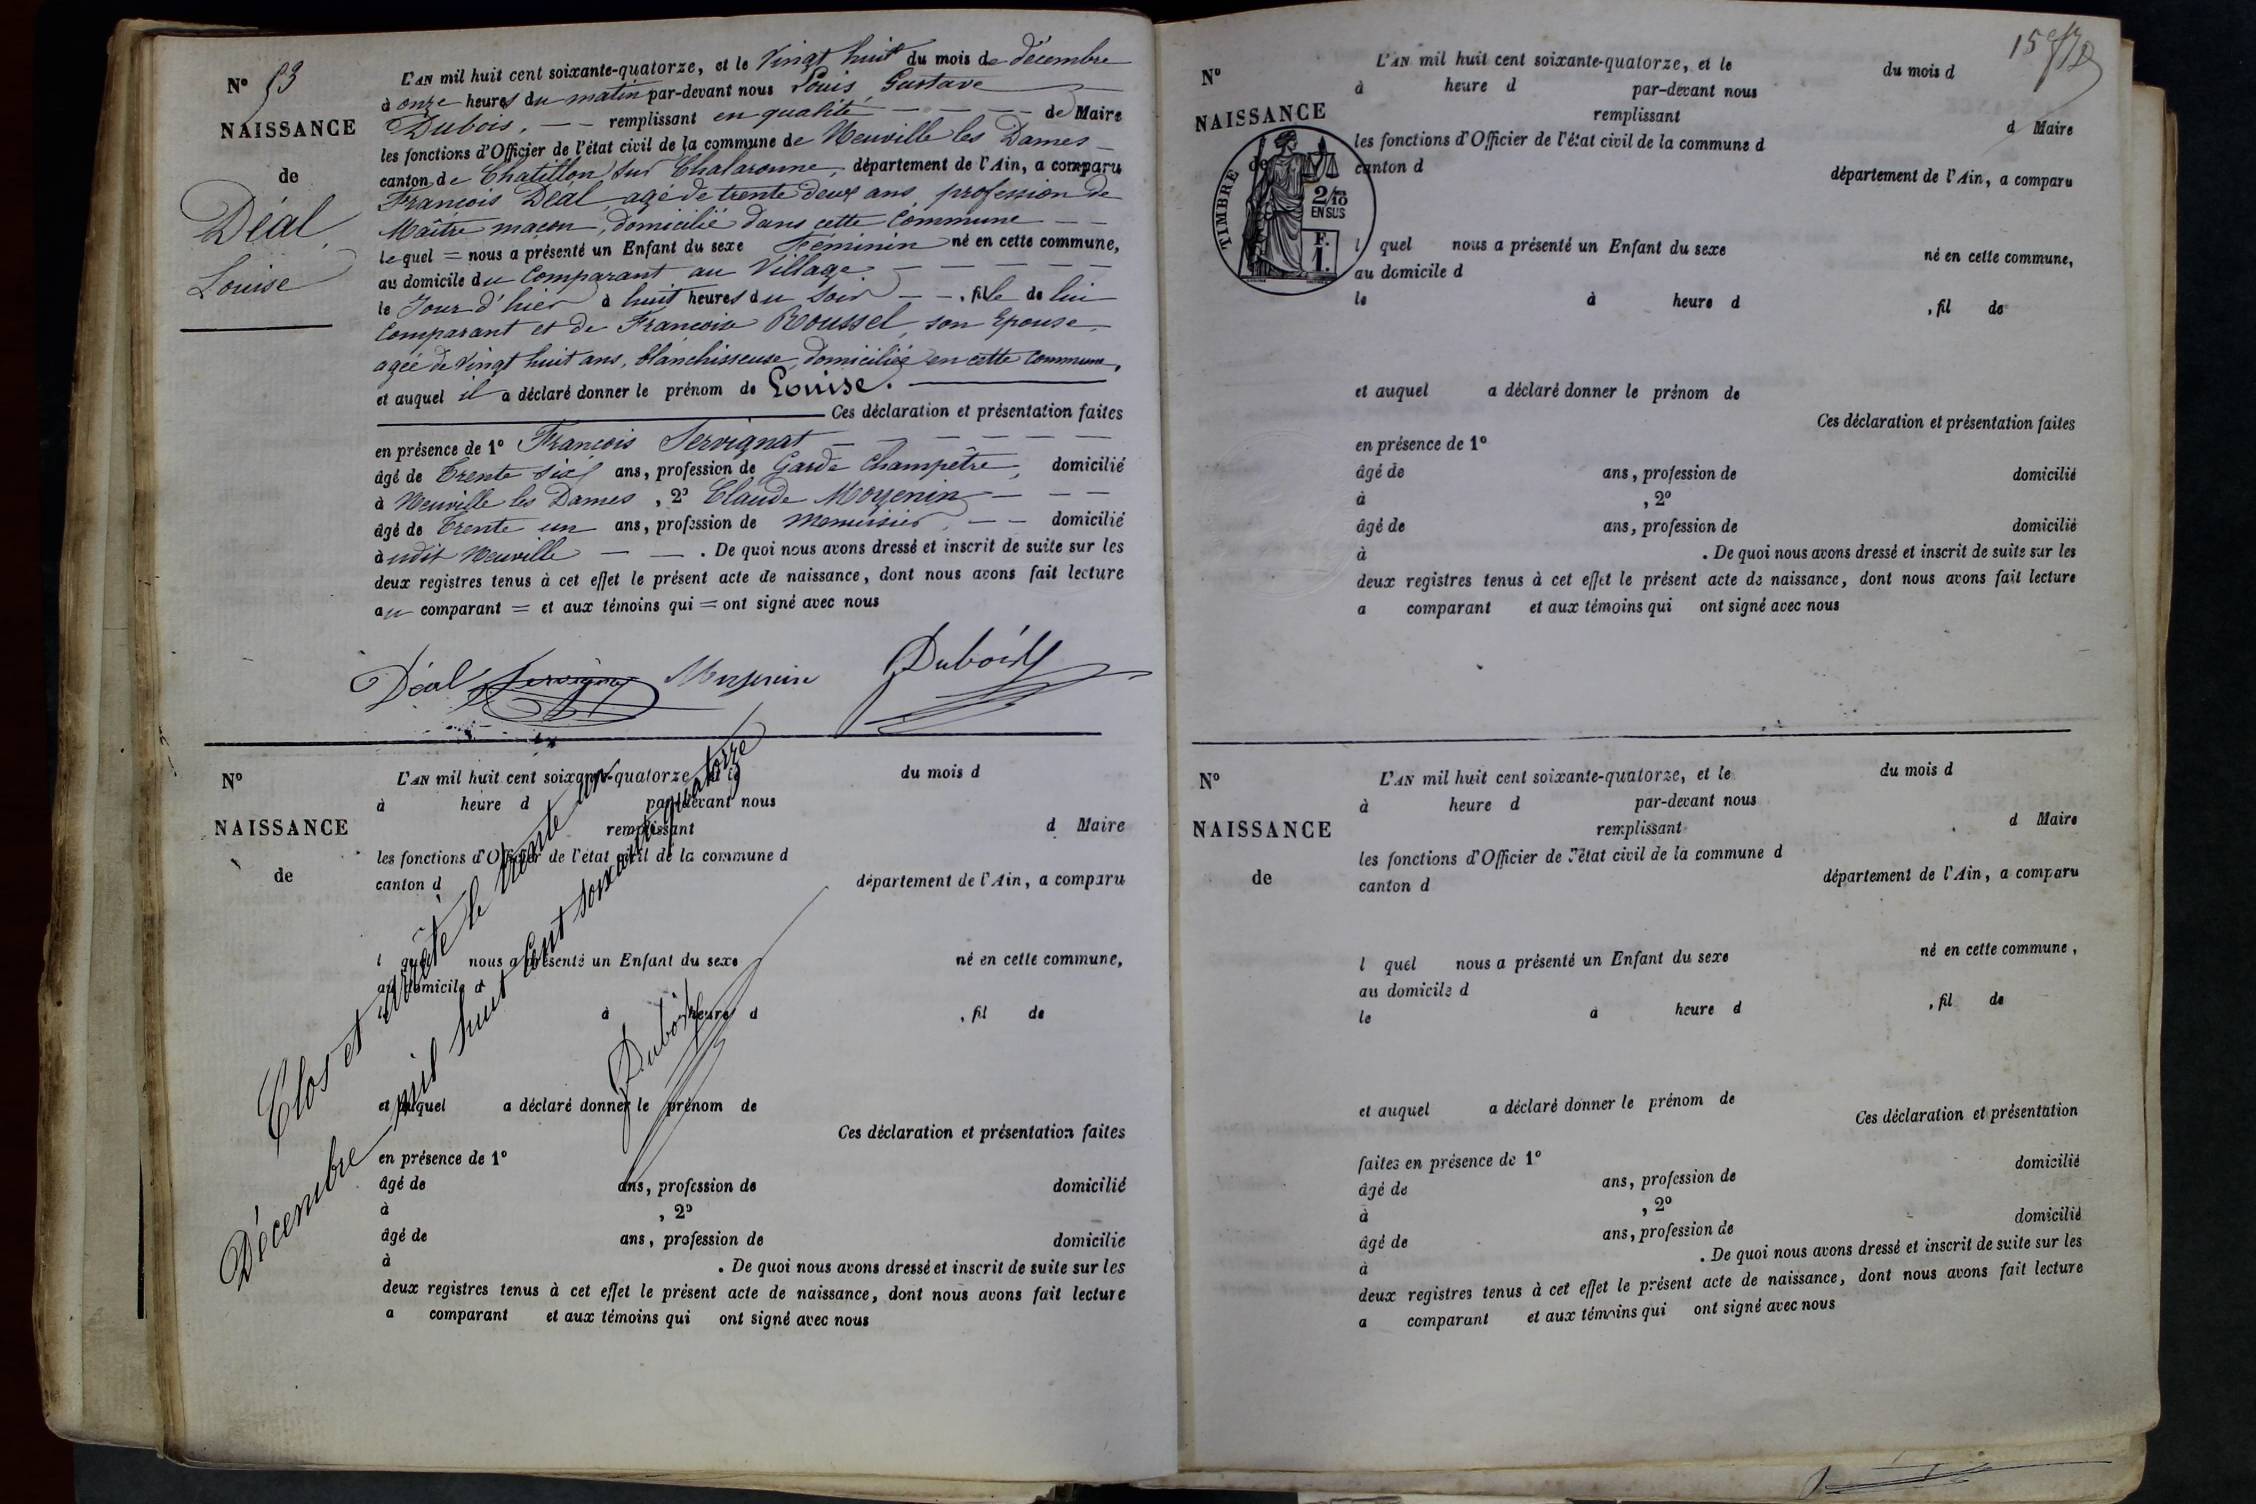 N° 53
NAISSANCE
de
Déal
Louise
L'AN mil huit cent soixante-quatorze, et le Vingt huit du mois de décembre
à onze heures du matin par-devant nous Louis Gustave
Dubois, — — remplissant en qualité — — — — de Maire
les fonctions d'Officier de l'état civil de la commune de Neuville les Dames —
canton de Chatillon sur Chalaronne, département de l'Ain, a comparu
François Déal agé de trente deux ans, profession de
Maître maçon, domicilié dans cette Commune — —
lequel = nous a présenté un Enfant du sexe Féminin né en cette commune,
au domicile du Comparant au Village — — — — —
le Jour d'hier à huit heures du Soir — — , fille de lui
Comparant et de Françoise Roussel, son Epouse,
agée de Vingt huit ans, blanchisseuse, domiciliée en cette commune,
et auquel il a déclaré donner le prénom de Louise. —
Ces déclaration et présentation faites
en présence de 1° François Servignat — — — — — —
âgé de Trente six ans, profession de Garde Champêtre, domicilié
à Neuville les Dames , 2° Claude Moyenin — — —
âgé de Trente un ans, profession de Menuisier, — — domicilié
à udit Neuville — — . De quoi nous avons dressé et inscrit de suite sur les
deux registres tenus à cet effet le présent acte de naissance, dont nous avons fait lecture
au comparant = et aux témoins qui = ont signé avec nous
Déal Servignat Moyenin Dubois
N°
NAISSANCE
de
L'AN mil huit cent soixante-quatorze, et le du mois d
à heure d par-devant nous
remplissant d Maire
les fonctions d'Officier de l'état civil de la commune d
canton d département de l'Ain, a comparu
l quel nous a présenté un Enfant du sexe né en cette commune,
au domicile d
à heure d , fil de
et auquel a déclaré donner le prénom de
Ces déclaration et présentation faites
en présence de 1°
âgé de ans, profession de domicilié
à , 2°
âgé de ans, profession de domicilié
à . De quoi nous avons dressé et inscrit de suite sur les
deux registres tenus à cet effet le présent acte de naissance, dont nous avons fait lecture
a comparant et aux témoins qui ont signé avec nous
Clos et arrêté le trente un
Décembre mil huit cent soixante quatorze
Dubois
15
N°
NAISSANCE
de
TIMBRE
2/10
EN SUS
F.
1.
L'AN mil huit cent soixante-quatorze, et le du mois d
à heure d par-devant nous
remplissant d Maire
les fonctions d'Officier de l'état civil de la commune d
canton d département de l'Ain, a comparu
l quel nous a présenté un Enfant du sexe né en cette commune,
au domicile d
le à heure d , fil de
et auquel a déclaré donner le prénom de
Ces déclaration et présentation faites
en présence de 1°
âgé de ans, profession de domicilié
à , 2°
âgé de ans, profession de domicilié
à . De quoi nous avons dressé et inscrit de suite sur les
deux registres tenus à cet effet le présent acte de naissance, dont nous avons fait lecture
a comparant et aux témoins qui ont signé avec nous
N°
NAISSANCE
de
L'AN mil huit cent soixante-quatorze, et le du mois d
à heure d par-devant nous
remplissant d Maire
les fonctions d'Officier de l'état civil de la commune d
canton d département de l'Ain, a comparu
l quel nous a présenté un Enfant du sexe né en cette commune,
au domicile d
le à heure d , fil de
et auquel a déclaré donner le prénom de
Ces déclaration et présentation
faites en présence de 1° domicilié
âgé de ans, profession de
à , 2° domicilié
âgé de ans, profession de
à . De quoi nous avons dressé et inscrit de suite sur les
deux registres tenus à cet effet le présent acte de naissance, dont nous avons fait lecture
a comparant et aux témoins qui ont signé avec nous